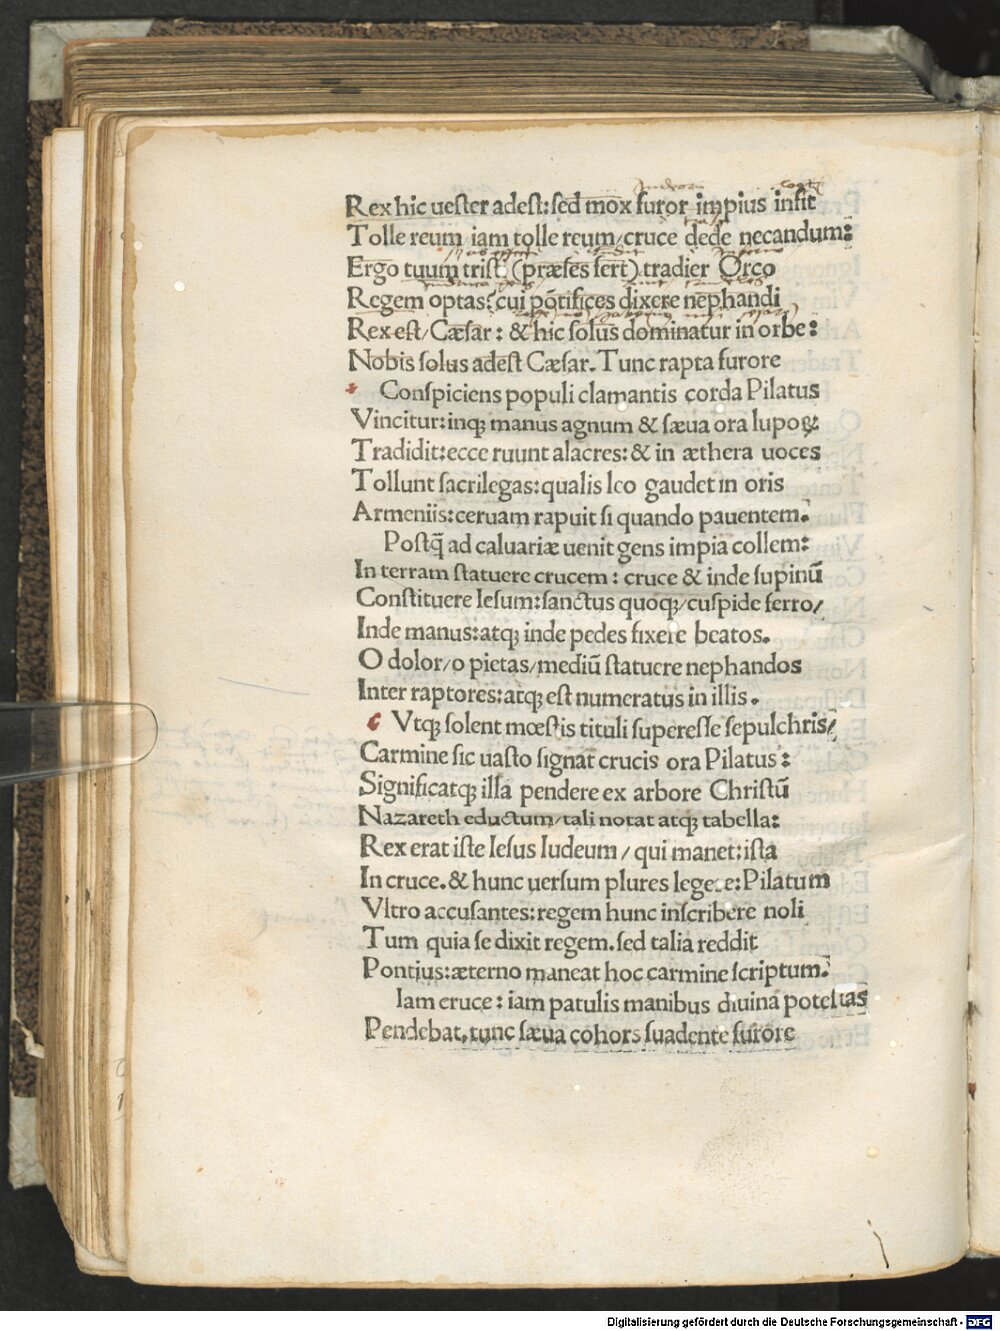 Rex hic ueſter adeſt: ſed mox furor impius inſit
Tolle reum iam tolle reum/cruce dede necandum:
Ergo tuum triſt (præſes fert) tradier Orco
Regem optas? cui põtifices dixere nephandi
Rex eſt/Cæſar: & hic ſolus dominatur in orbe:
Nobis ſolus adeſt Cæſar. Tunc rapta furore
Conſpiciens populi clamantis corda Pilatus
Vincitur: inqꝫ manus agnum & ſæua ora lupoꝝ:
Tradidit: ecce ruunt alacres: & in æthera uoces
Tollunt ſacrilegas: qualis leo gaudet in oris
Armeniis: ceruam rapuit ſi quando pauentem.
Poſtq̃ ad caluariæ uenit gens impia collem:
In terram ſtatuere crucem: cruce & inde ſupinũ
Conſtituere Ieſum: ſanctus quoqꝫ/cuſpide ferro/
Inde manus: atqꝫ inde pedes fixere beatos.
O dolor/o pietas/mediũ ſtatuere nephandos
Inter raptores: atqꝫ eſt numeratus in illis.
Vtqꝫ ſolent mœſtis tituli ſupereſſe ſepulchris/
Carmine ſic uaſto ſignat crucis ora Pilatus:
Significatqꝫ illa pendere ex arbore Chriſtũ
Nazareth eductum/tali notat atqꝫ tabella:
Rex erat iſte Ieſus Iudeum/qui manet: iſta
In cruce. & hunc uerſum plures legere: Pilatum
Vltro accuſantes: regem hunc inſcribere noli
Tum quia ſe dixit regem. ſed talia reddit
Pontius: æterno maneat hoc carmine ſcriptum.
Iam cruce: iam patulis manibus diuina poteſtas
Pendebat. tunc ſæua cohors ſuadente furore
Digitalisierung gefördert durch die Deutsche Forschungsgemeinschaft - DFG